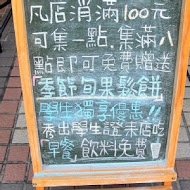 凡店消滿100元
可集一點.集滿八
點即可免費贈送
季節旬果鬆餅
學生獨享優惠!!
秀出學生證來店吃
早餐,飲料免費